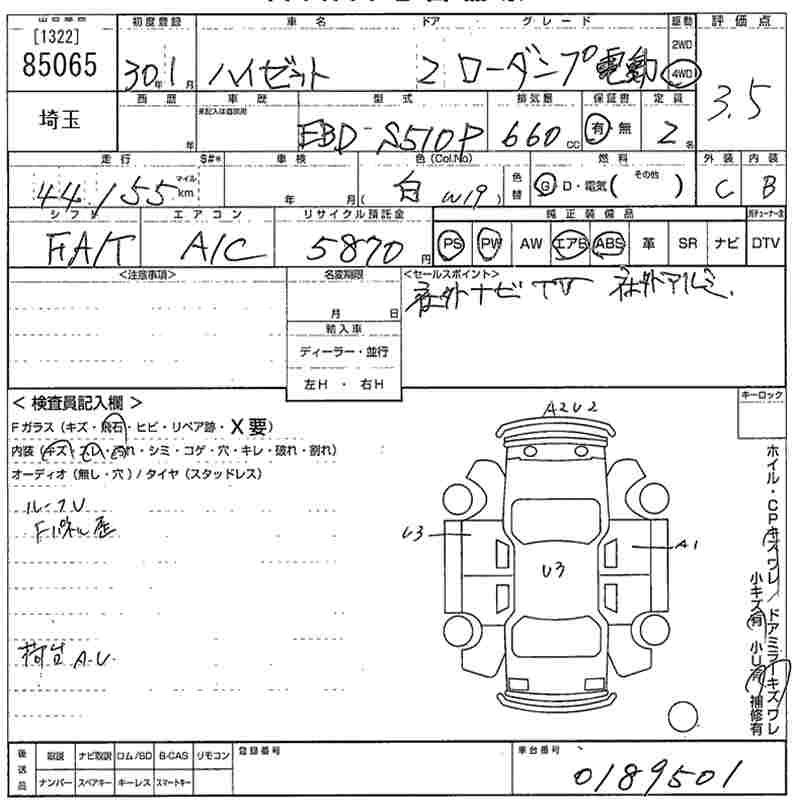 出品番号 初度登録 車名 ドア グレード 駆動 評価点
[1322]
85065
30年 1月 ハイゼット 2 ローダンプ電動 2WD 4WD 3.5
埼玉 西暦 車歴 型式 排気量 保証書 定員
未記入は自家用
年 EBD-S510P 660cc 有・無 2名
走行 S#* 車検 色(Col.No) 燃料 外装 内装
44155 マイル km 年 月 ( 白 W19 ) 色替 G・D・電気( その他 ) C B
シフト エアコン リサイクル預託金 純正装備品
FA/T A/C 5870円 PS PW AW エアB ABS 革 SR ナビ DTV
<注意事項> 名変期限 <セールスポイント>
月 日 社外ナビ TV 社外アルミ.
輸入車
ディーラー・並行
左H ・ 右H
< 検査員記入欄 > キーロック
Fガラス (キズ・飛石・ヒビ・リペア跡・X要)
内装 (キズ・スレ・汚れ・シミ・コゲ・穴・キレ・破れ・割れ)
オーディオ (無し・穴) / タイヤ (スタッドレス)
ルーフU
Fパネル歪
荷台 A-U.
A2U2
U3
U3
A1
ホイル・CPキズワレ/ドアミラーキズワレ
小キズ有 小U有 補修有
後送品 取説 ナビ取説 ロム/SD B-CAS リモコン 登録番号 車台番号
ナンバー スペアキー キーレス スマートキー 0189501